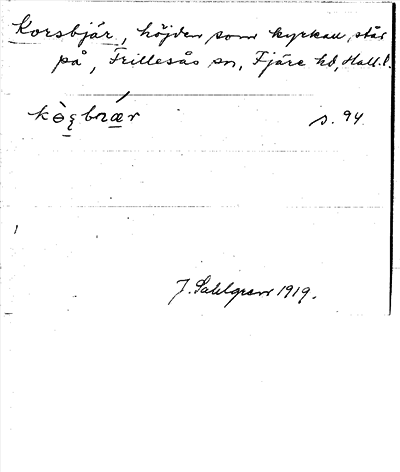 Korsbjär, höjden som kyrkan står
på, Frillesås sn, Fjäre hd, Hall. l.
s. 94
J. Sahlgren 1919.